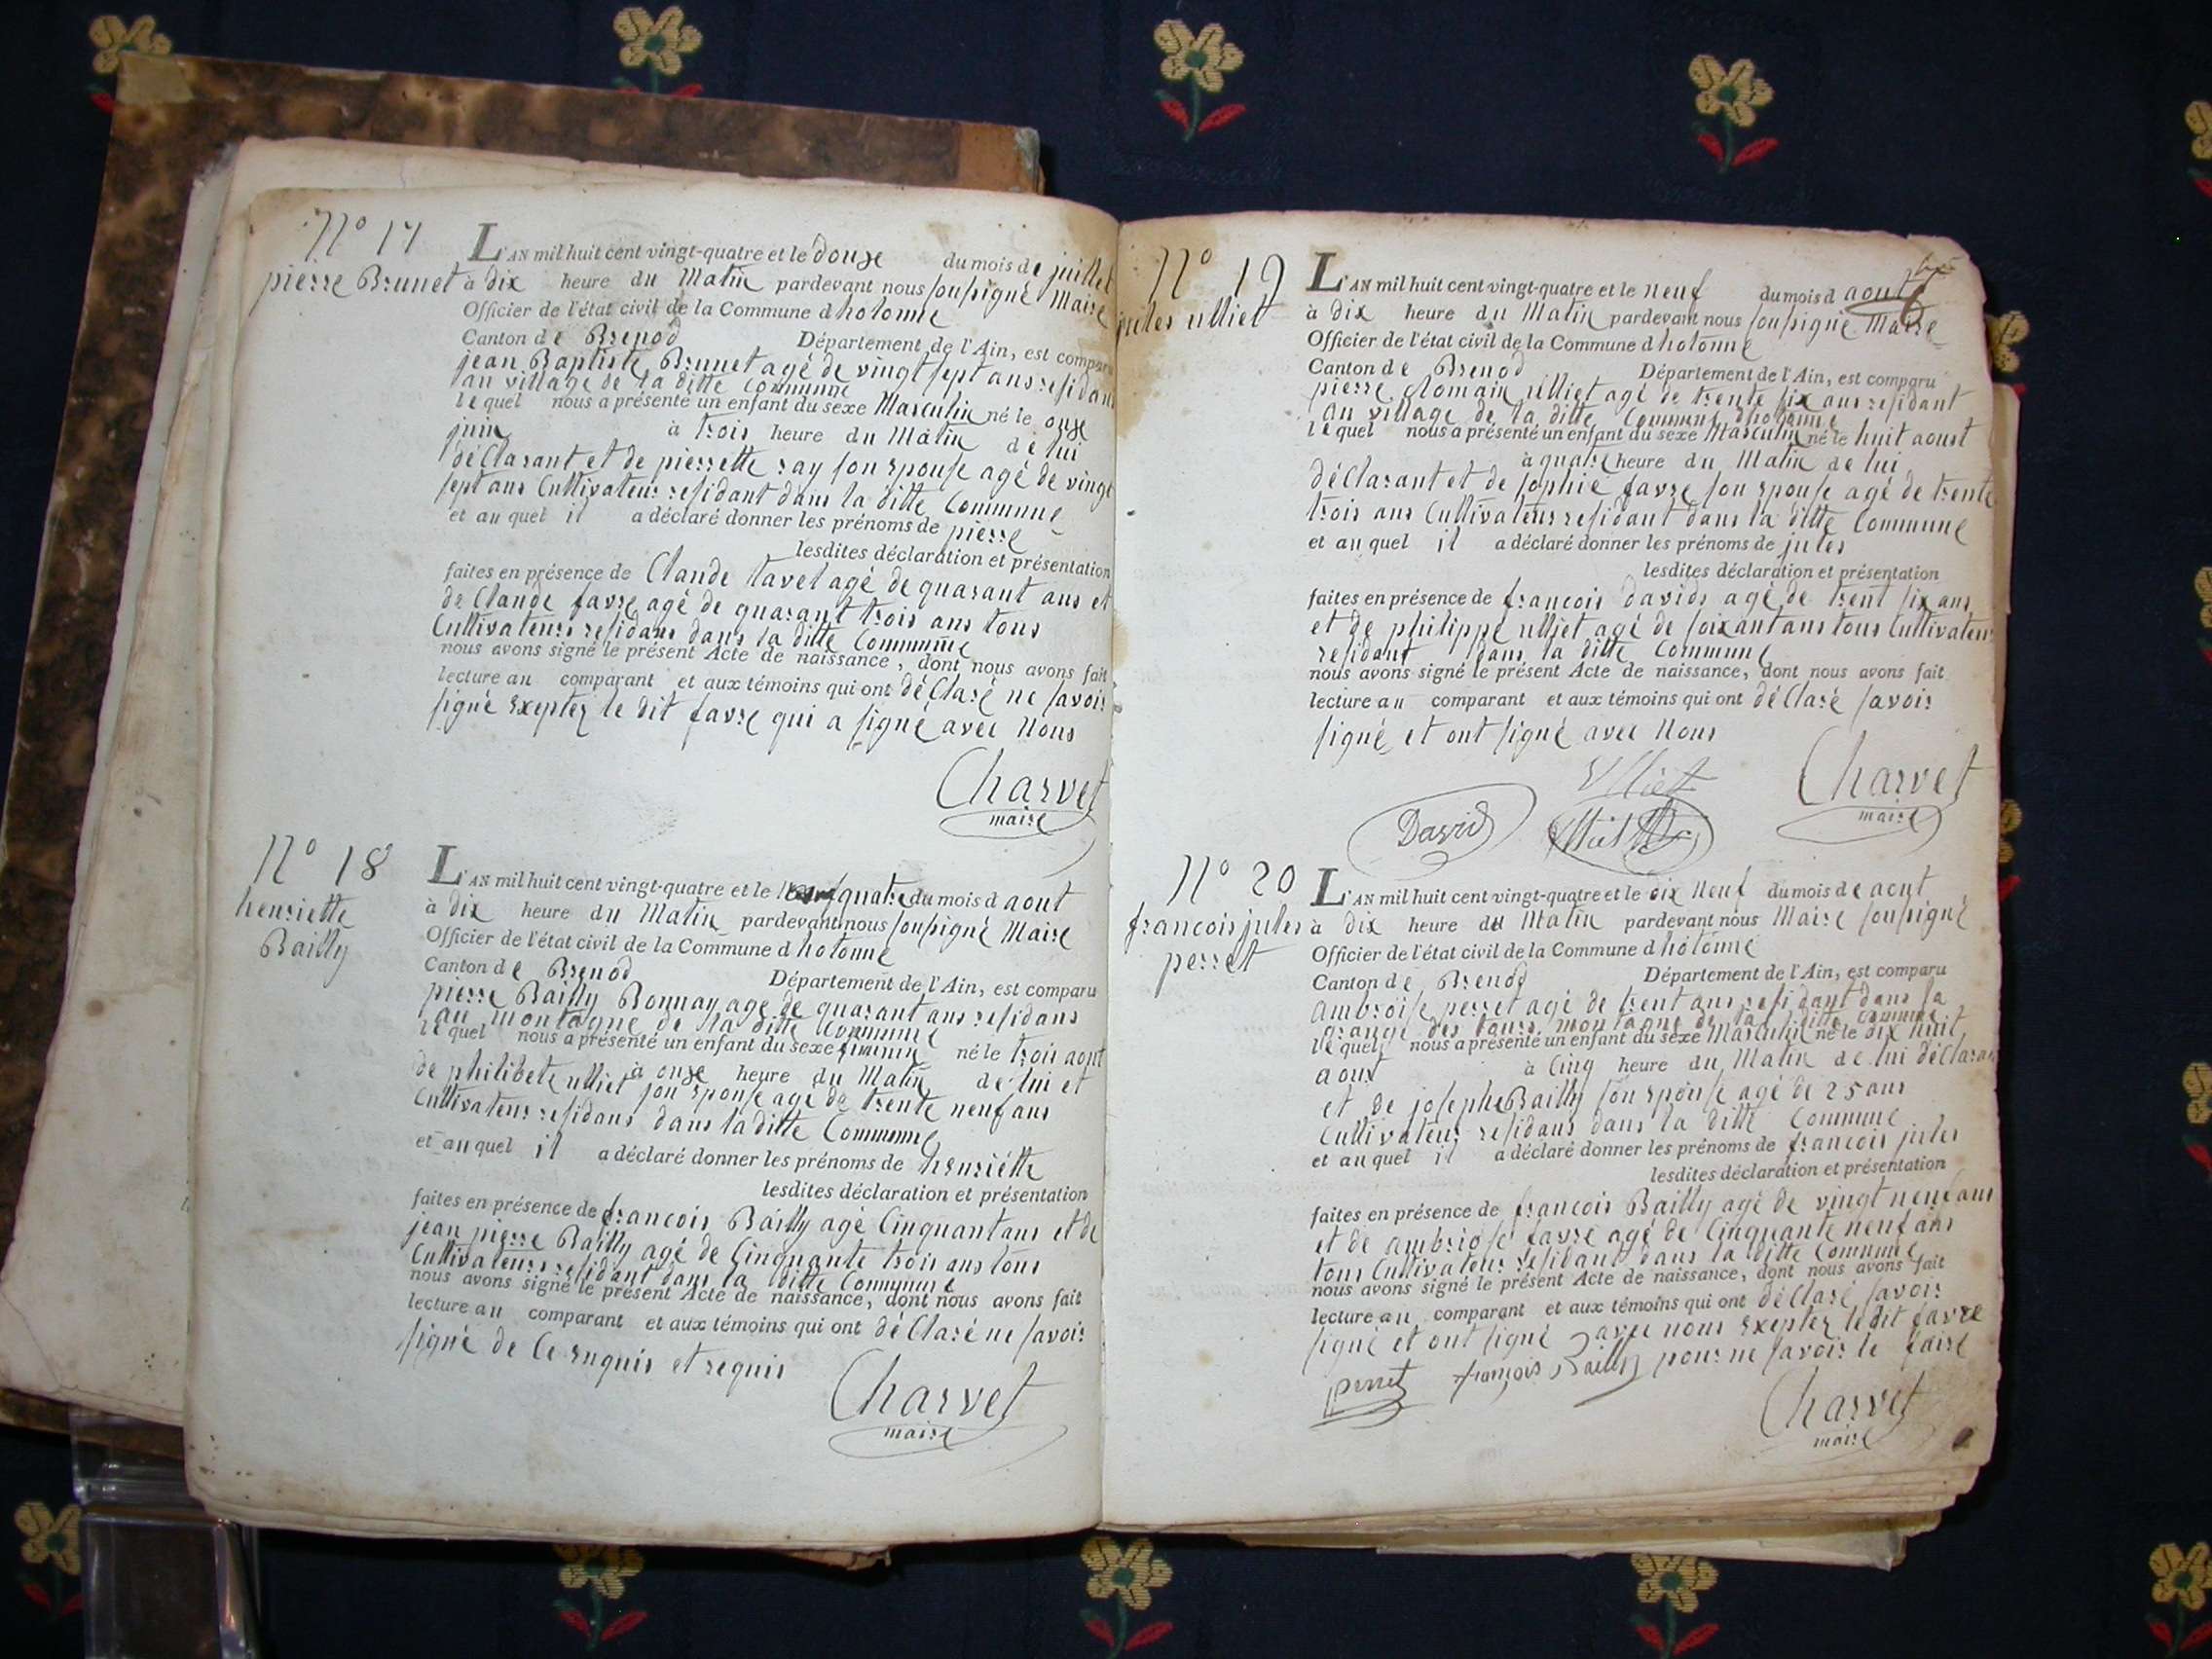 N° 17
pierre Brunet
L'AN mil huit cent vingt-quatre et le douze du mois de juillet
à dix heure du Matin pardevant nous soussigné Maire
Officier de l'état civil de la Commune d hotonne
Canton de Brenod Département de l'Ain, est comparu
jean Baptiste Brunet agé de vingt sept ans residant
au village de la ditte Commune
le quel nous a présenté un enfant du sexe Masculin né le onze
juin à trois heure du Matin de lui
déClarant et de pierrette ray son epouse agé de vingt
sept ans Cultivateur residant dans la ditte Commune
et au quel il a déclaré donner les prénoms de pierre
lesdites déclaration et présentation
faites en présence de Claude tavel agé de quarant ans et
de Claude favre agé de quarant trois ans tous
Cultivateurs residans dans la ditte Commune
nous avons signé le présent Acte de naissance, dont nous avons fait
lecture au comparant et aux témoins qui ont déClaré ne savoir
signé exeptez le dit favre qui a signé avec Nous
Charvet
maire
N° 18
henriette
Bailly
L'AN mil huit cent vingt-quatre et le quatre du mois d aout
à dix heure du Matin pardevant nous soussigné Maire
Officier de l'état civil de la Commune d hotonne
Canton de Brenod Département de l'Ain, est comparu
pierre Bailly Bonnay agé de quarant ans residans
au montagne de la ditte Commune
le quel nous a présenté un enfant du sexe feminin né le trois aout
à onze heure du Matin de lui et
de philibete ulliet son epouse agé de trente neuf ans
Cultivateur residans dans la ditte Commune
et au quel il a déclaré donner les prénoms de henriétte
lesdites déclaration et présentation
faites en présence de francois Bailly agé Cinquant ans et de
jean pierre Bailly agé de Cinquante trois ans tous
Cultivateurs residant dans la ditte Commune
nous avons signé le présent Acte de naissance, dont nous avons fait
lecture au comparant et aux témoins qui ont déClaré ne savoir
signé de Ce enquis et requis
Charvet
maire
N° 19
jules ulliet
L'AN mil huit cent vingt-quatre et le neuf du mois d aout
à dix heure du Matin pardevant nous soussigné Maire
Officier de l'état civil de la Commune d hotonne
Canton de Brenod Département de l'Ain, est comparu
pierre Romain ulliet agé de trente six ans residant
au village de la ditte Commune dhotonne
le quel nous a présenté un enfant du sexe Masculin né le huit aoust
à quatre heure du Matin de lui
déClarant et de sophie favre son epouse agé de trente
trois ans Cultivateurs residant dans la ditte Commune
et au quel il a déclaré donner les prénoms de jules
lesdites déclaration et présentation
faites en présence de francois davids agé de trent six ans
et de philippe ulliet agé de soixant ans tous Cultivateur
residant dans la ditte Commune
nous avons signé le présent Acte de naissance, dont nous avons fait
lecture au comparant et aux témoins qui ont déClaré savoir
signé et ont signé avec Nous
Ulliet
Charvet
maire
David
N° 20
francois jules
perret
L'AN mil huit cent vingt-quatre et le dix Neuf du mois de aout
à dix heure du Matin pardevant nous Maire soussigné
Officier de l'état civil de la Commune d hotonne
Canton de Brenod Département de l'Ain, est comparu
Ambroise perret agé de trent ans residant dans la
grange des tours montagne de la ditte Commune
le quel nous a présenté un enfant du sexe Masculin né le dix huit
aout à Cinq heure du Matin de lui déClarant
et de josephe Bailly son epouse agé de 25 ans
Cultivateur residans dans la ditte Commune
et au quel il a déclaré donner les prénoms de francois jules
lesdites déclaration et présentation
faites en présence de francois Bailly agé de vingt neuf ans
et de ambriose favre agé de Cinquante neuf ans
tous Cultivateur residant dans la ditte Commune
nous avons signé le présent Acte de naissance, dont nous avons fait
lecture au comparant et aux témoins qui ont déClaré savoir
signé et ont signé avec nous exeptez ledit favre
pour ne savoir le faire
perret françois Bailly
Charvet
maire